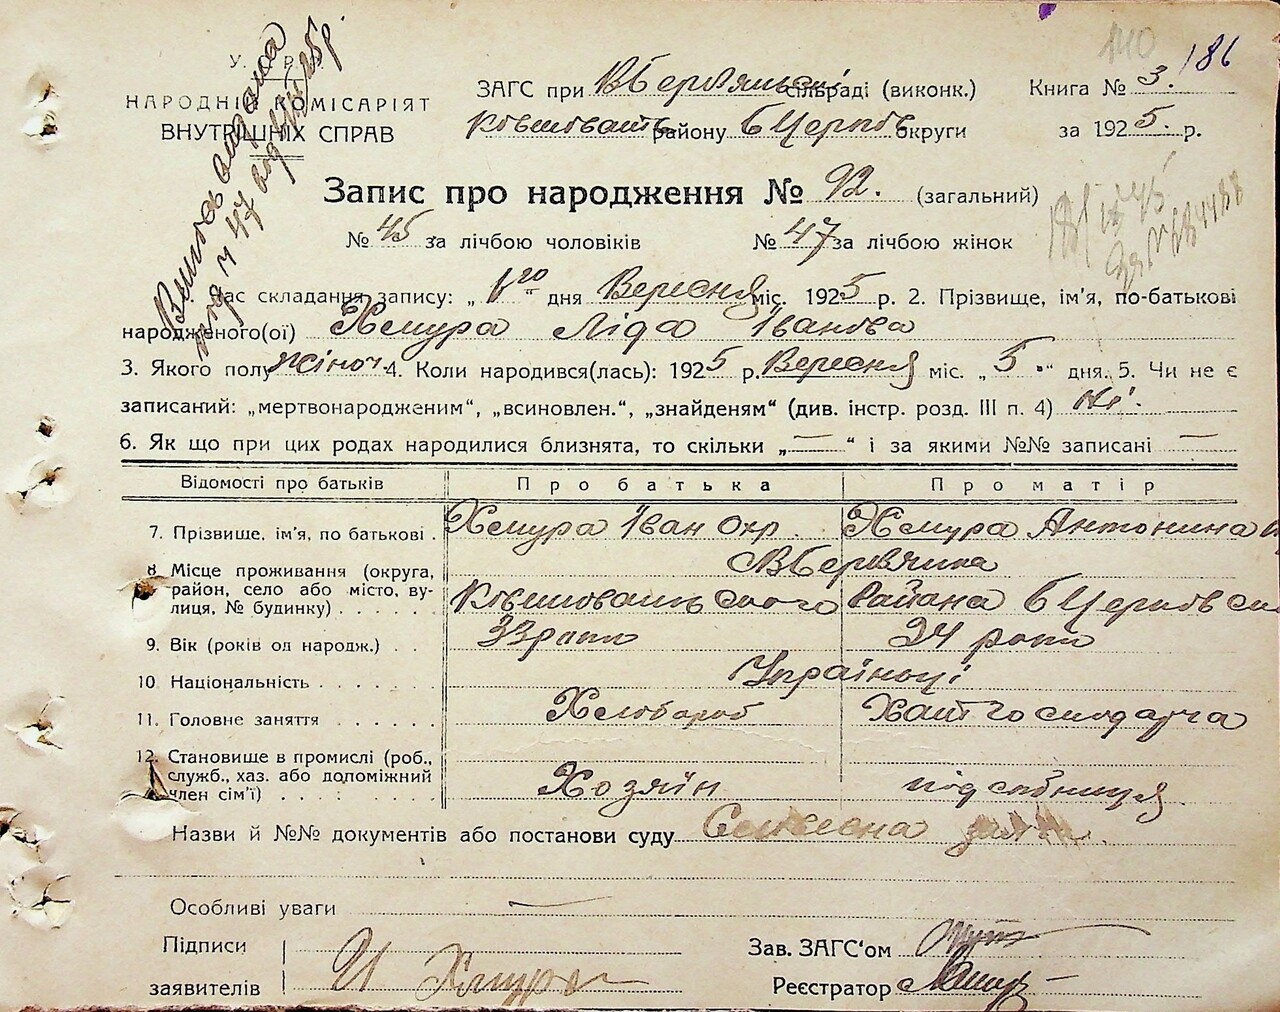 140 186
У. Р.
НАРОДНІЙ КОМІСАРІЯТ
ВНУТРІШНІХ СПРАВ
ЗАГС при сільраді (виконк.) Книга № 3.
району БЦерків округи за 1925. р.
Запис про народження № 92. (загальний)
№ 45 за лічбою чоловіків № 47 за лічбою жінок
Час складання запису: „ “ дня Вересня міс. 1925 р. 2. Прізвище, ім'я, по-батькові
народженого(ої) Хмура Ліда Іванова
3. Якого полу жіноч. 4. Коли народився(лась): 1925 р. Вересня міс. „ 5 “ дня. 5. Чи не є
записаний: „мертвонародженим“, „всиновлен.“, „знайденям“ (див. інстр. розд. III п. 4) ні.
6. Як що при цих родах народилися близнята, то скільки „—“ і за якими №№ записані —
Відомості про батьків Про батька Про матір
7. Прізвище, ім'я, по батькові . Хмура Іван Хмура Антонина
8 Місце проживання (округа,
район, село або місто, вулиця, № будинку) . . . . . Района БЦерков
9. Вік (років од народж.) . . 33 роки 24 роки
10 Національність . . . . . . . Українці
11. Головне заняття . . . . . . Хлебороб Хатт господарча
12. Становище в промислі (роб.,
служб., хаз. або допоміжний
член сім'ї) . . . . . . . . . . Хозяїн підсобниця
Назви й №№ документів або постанови суду
Особливі уваги —
Підписи Зав. ЗАГС'ом
заявителів И Хмура Реєстратор